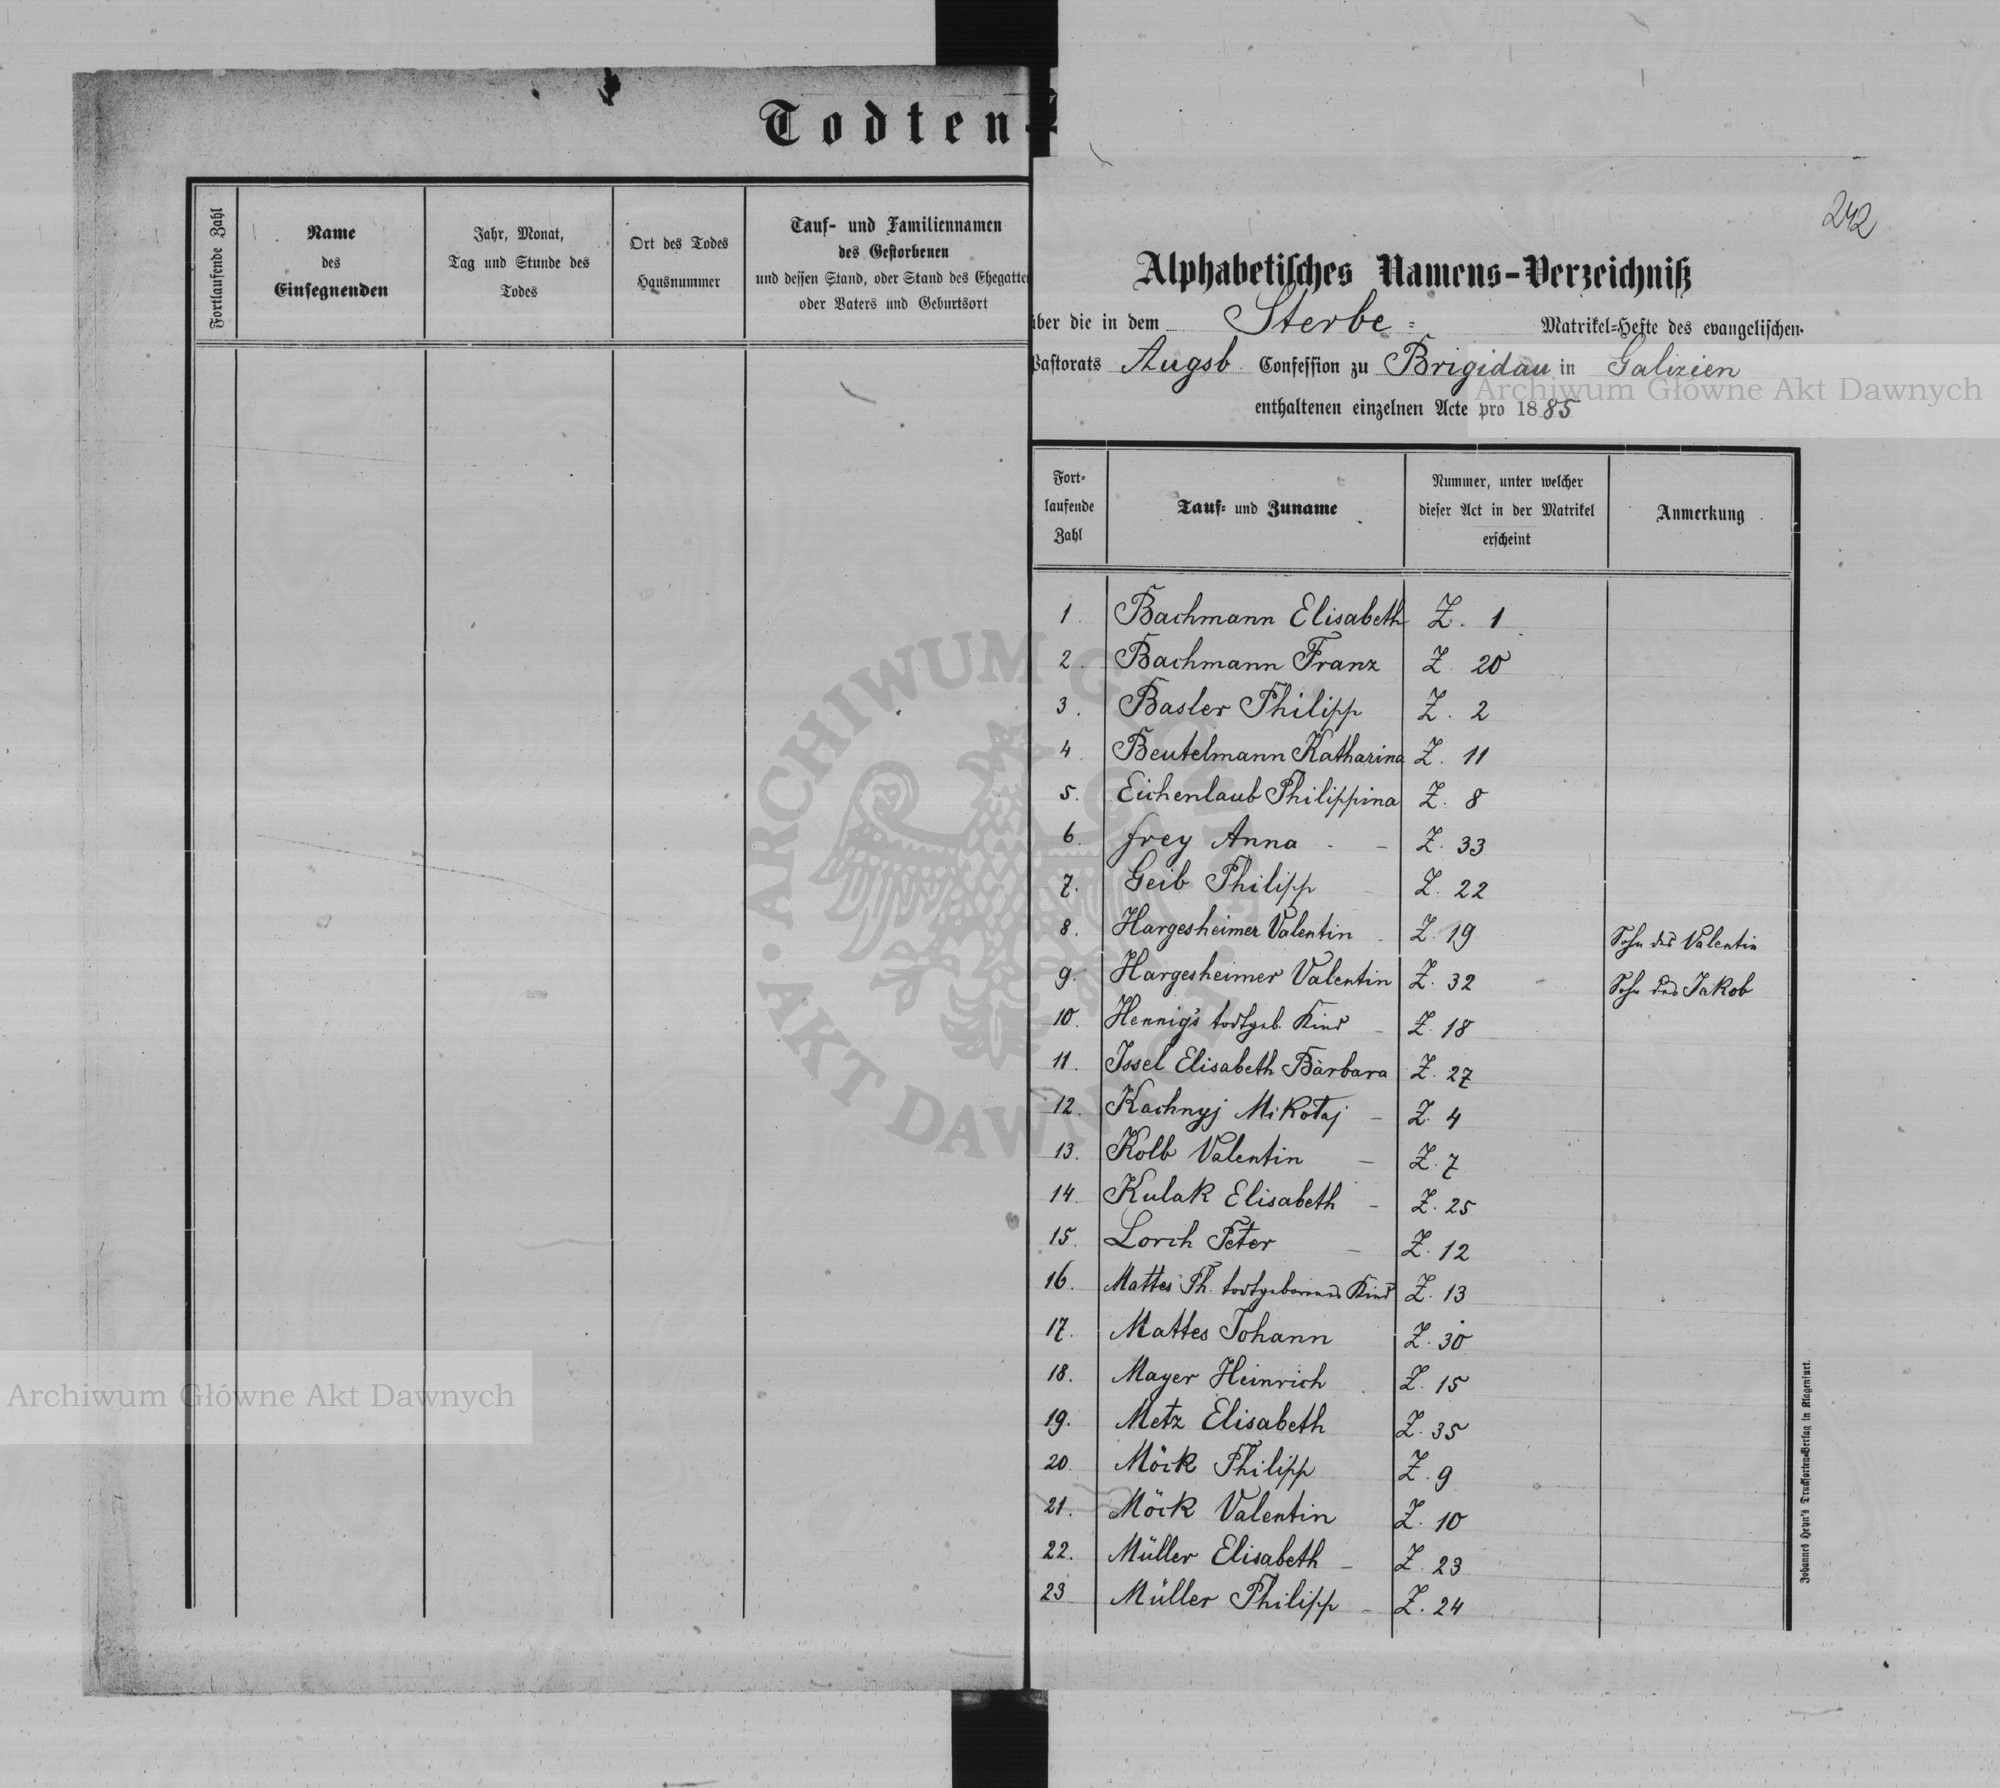 Todten-
Fortlaufende Zahl
Name
des
Einsegnenden
Jahr, Monat,
Tag und Stunde des
Todes
Ort des Todes
Hausnummer
Tauf- und Familiennamen
des Gestorbenen
und dessen Stand, oder Stand des Ehegatten
oder Vaters und Geburtsort
242
Alphabetisches Namens-Verzeichniß
über die in dem Sterbe= Matrikel=Hefte des evangelischen
Pastorats Augsb. Confession zu Brigidau in Galizien
enthaltenen einzelnen Acte pro 1885
Fort-
laufende
Zahl
Tauf= und Zuname
Nummer, unter welcher
dieser Act in der Matrikel
erscheint
Anmerkung
1. Bachmann Elisabeth Z. 1
2. Bachmann Franz Z. 20
3. Basler Philipp Z. 2
4. Beutelmann Katharina Z. 11
5. Eichenlaub Philippina Z. 8
6. Frey Anna - - Z. 33
7. Geib Philipp Z. 22
8. Hargesheimer Valentin Z. 19 Sohn des Valentin
9. Hargesheimer Valentin Z. 32 Sohn des Jakob
10. Hennig's todtgeb. Kind - Z. 18
11. Issel Elisabeth Barbara Z. 27
12. Kachnyj Mikołaj - Z. 4
13. Kolb Valentin - Z. 7
14. Kulak Elisabeth - Z. 25
15. Lorch Peter - Z. 12
16. Mattes Ph. todtgeborenes Kind Z. 13
17. Mattes Johann Z. 30
18. Mayer Heinrich Z. 15
19. Metz Elisabeth Z. 35
20. Möck Philipp Z. 9
21. Möck Valentin Z. 10
22. Müller Elisabeth - Z. 23
23. Müller Philipp - Z. 24
Johannes Heyn's Drucksorten-Verlag in Klagenfurt.
Archiwum Główne Akt Dawnych
Archiwum Główne Akt Dawnych
ARCHIWUM GŁÓWNE AKT DAWNYCH